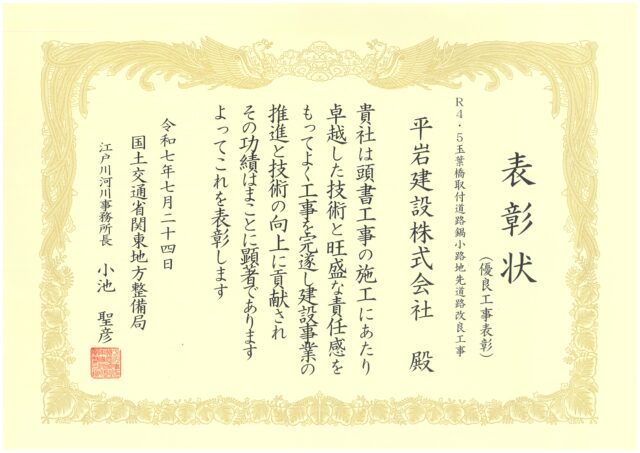 表彰状
（優良工事表彰）
R4・5玉葉橋取付道路鍋小路地先道路改良工事
平岩建設株式会社 殿
貴社は頭書工事の施工にあたり
卓越した技術と旺盛な責任感を
もってよく工事を完遂し建設事業の
推進と技術の向上に貢献され
その功績はまことに顕著であります
よってこれを表彰します
令和七年七月二十四日
国土交通省関東地方整備局
江戸川河川事務所長 小池 聖彦